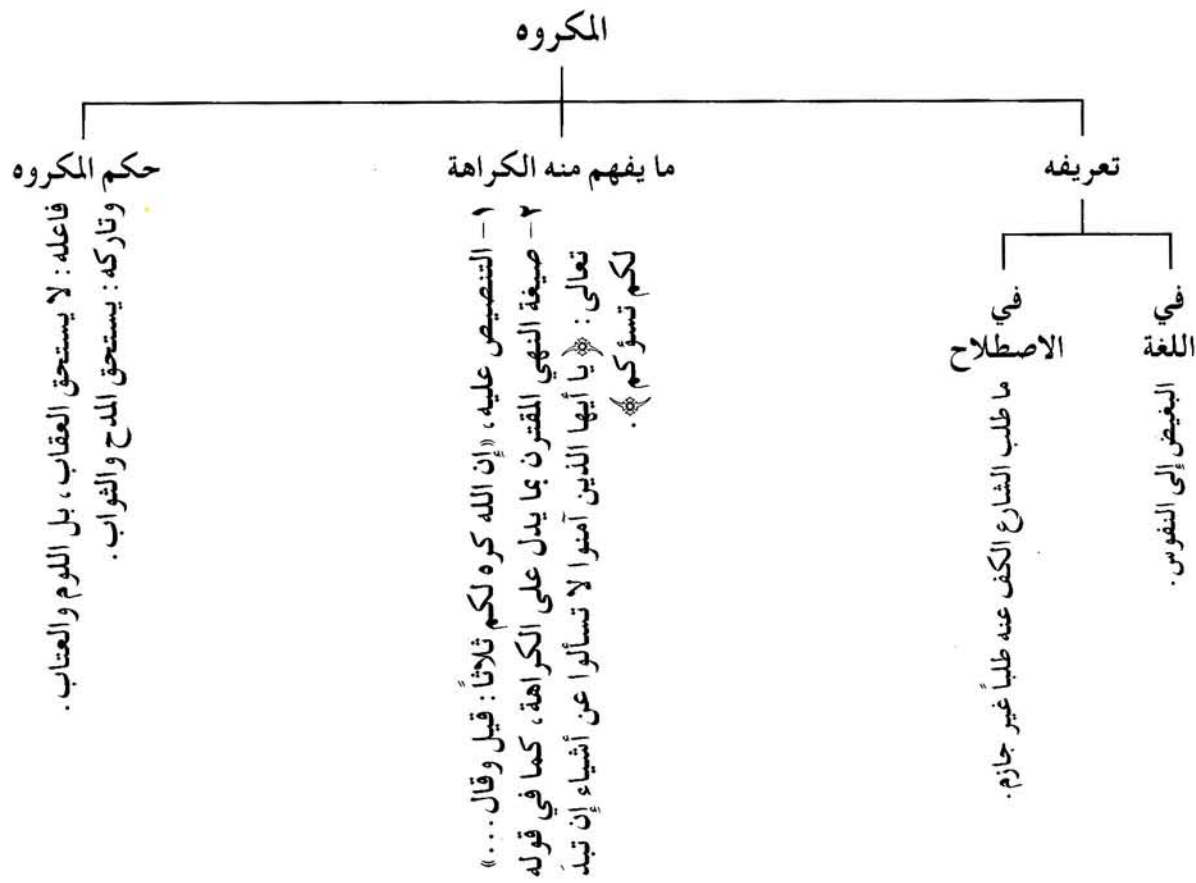 المكروه
تعريفه
في
اللغة
البغيض إلى النفوس.
في
الاصطلاح
ما طلب الشارع الكف عنه طلباً غير جازم.
ما يفهم منه الكراهة
١ – التنصيص عليه، «إن الله كره لكم ثلاثاً: قيل وقال...»
٢ – صيغة النهي المقترن بما يدل على الكراهة، كما في قوله
تعالى: ﴿يا أيها الذين آمنوا لا تسألوا عن أشياء إن تبدَ
لكم تسؤكم﴾.
حكم المكروه
فاعله: لا يستحق العقاب، بل اللوم والعتاب.
وتاركه: يستحق المدح والثواب.